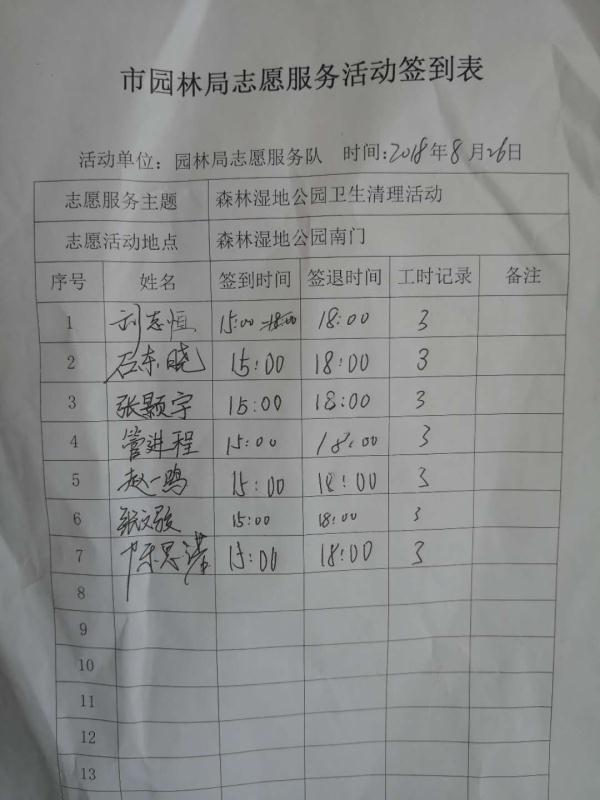 市园林局志愿服务活动签到表
活动单位：园林局志愿服务队 时间:2018年8月26日
志愿服务主题 森林湿地公园卫生清理活动
志愿活动地点 森林湿地公园南门
序号 姓名 签到时间 签退时间 工时记录 备注
1 刘志恒 15:00 18:00 3
2 石东晓 15:00 18:00 3
3 张颢宇 15:00 18:00 3
4 管进程 15:00 18:00 3
5 赵一鸣 15:00 18:00 3
6 张文骏 15:00 18:00 3
7 陈思 15:00 18:00 3
8
9
10
11
12
13